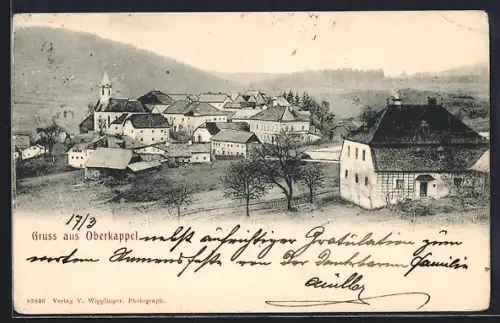 17/3
Gruss aus Oberkappel nebst aufrichtiger Gratulation zum
werten Namensfeste von der dankbaren Familie
Müller
57846 Verlag V. Wipplinger, Photograph.